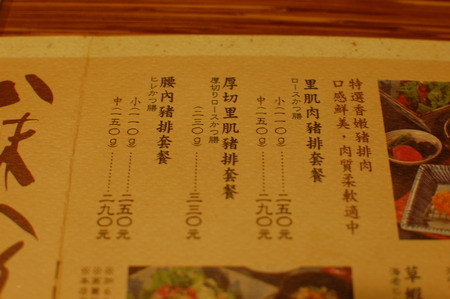 特選香嫩豬排肉
口感鮮美，肉質柔軟適中
里肌肉豬排套餐
ロースかつ膳
小(一一〇g)……二五〇元
中(一五〇g)……二九〇元
厚切里肌豬排套餐
厚切りロースかつ膳
(二三〇g)……三三〇元
腰內豬排套餐
ヒレかつ膳
小(一一〇g)……二五〇元
中(一五〇g)……二九〇元
八味
草蝦